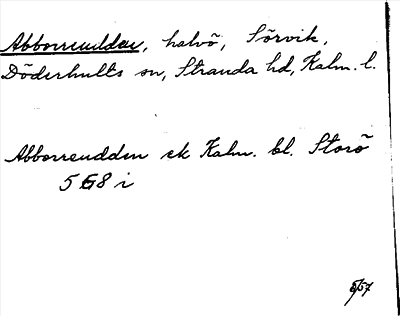 Abborrudden, halvö, Sörvik,
Döderhults sn, Stranda hd, Kalm. l.
Abborreudden ek Kalm. bl. Storö
5G8 i
57